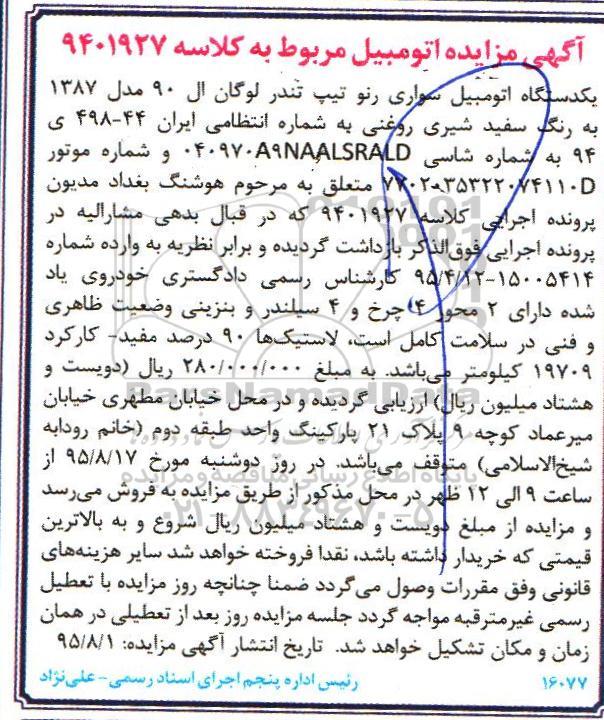 آگهی مزایده اتومبیل مربوط به کلاسه ۹۴۰۱۹۲۷
یکدستگاه اتومبیل سواری رنو تیپ تندر لوگان ال ۹۰ مدل ۱۳۸۷
به رنگ سفید شیری روغنی به شماره انتظامی ایران ۴۴-۴۹۸ ی
۹۴ به شماره شاسی ۰۴۰۹۷۰A۹NAALSRALD و شماره موتور
۷۷۰۲۰۳۵۳۲۲۰۷۴۱۱۰D متعلق به مرحوم هوشنگ بغداد مدیون
پرونده اجرایی کلاسه ۹۴۰۱۹۲۷ که در قبال بدهی مشارالیه در
پرونده اجرایی فوق‌الذکر بازداشت گردیده و برابر نظریه به وارده شماره
۱۵۰۰۵۴۱۴-۹۵/۴/۱۲ کارشناس رسمی دادگستری خودروی یاد
شده دارای ۲ محور ۴ چرخ و ۴ سیلندر و بنزینی وضعیت ظاهری
و فنی در سلامت کامل است، لاستیک‌ها ۹۰ درصد مفید- کارکرد
۱۹۷۰۹ کیلومتر می‌باشد. به مبلغ ۲۸۰/۰۰۰/۰۰۰ ریال (دویست و
هشتاد میلیون ریال) ارزیابی گردیده و در محل خیابان مطهری خیابان
میرعماد کوچه ۹ پلاک ۲۱ پارکینگ واحد طبقه دوم (خانم رودابه
شیخ‌الاسلامی) متوقف می‌باشد. در روز دوشنبه مورخ ۹۵/۸/۱۷ از
ساعت ۹ الی ۱۲ ظهر در محل مذکور از طریق مزایده به فروش می‌رسد
و مزایده از مبلغ دویست و هشتاد میلیون ریال شروع و به بالاترین
قیمتی که خریدار داشته باشد، نقدا فروخته خواهد شد سایر هزینه‌های
قانونی وفق مقررات وصول می‌گردد ضمنا چنانچه روز مزایده با تعطیل
رسمی غیرمترقبه مواجه گردد جلسه مزایده روز بعد از تعطیلی در همان
زمان و مکان تشکیل خواهد شد. تاریخ انتشار آگهی مزایده: ۹۵/۸/۱
۱۶۰۷۷ رئیس اداره پنجم اجرای اسناد رسمی- علی‌نژاد
ParsNamadData
پایگاه اطلاع رسانی مناقصه و مزایده
۰۲۱-۸۸۳۴۹۶۷۰-۵